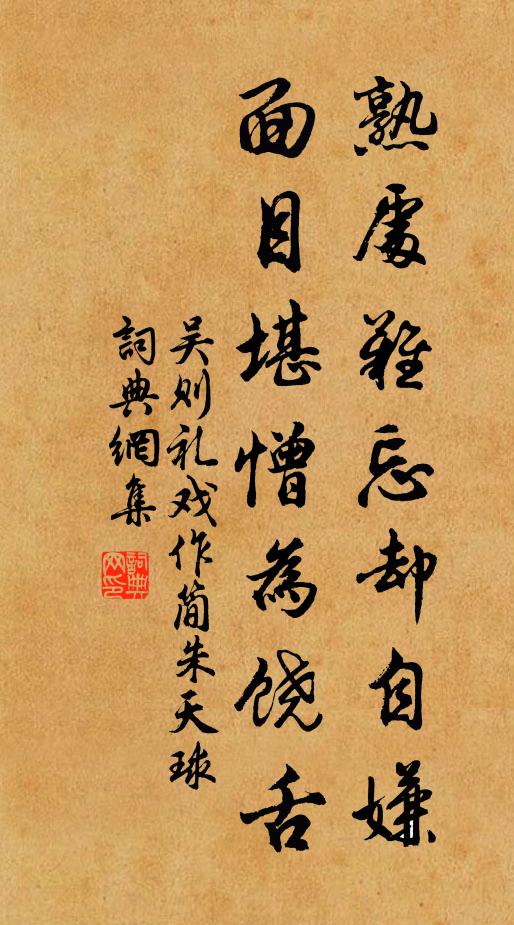 熟處難忘却自嫌
面目堪憎為饶舌
吴则礼戏作简朱天球
詞典網集
詞典網印